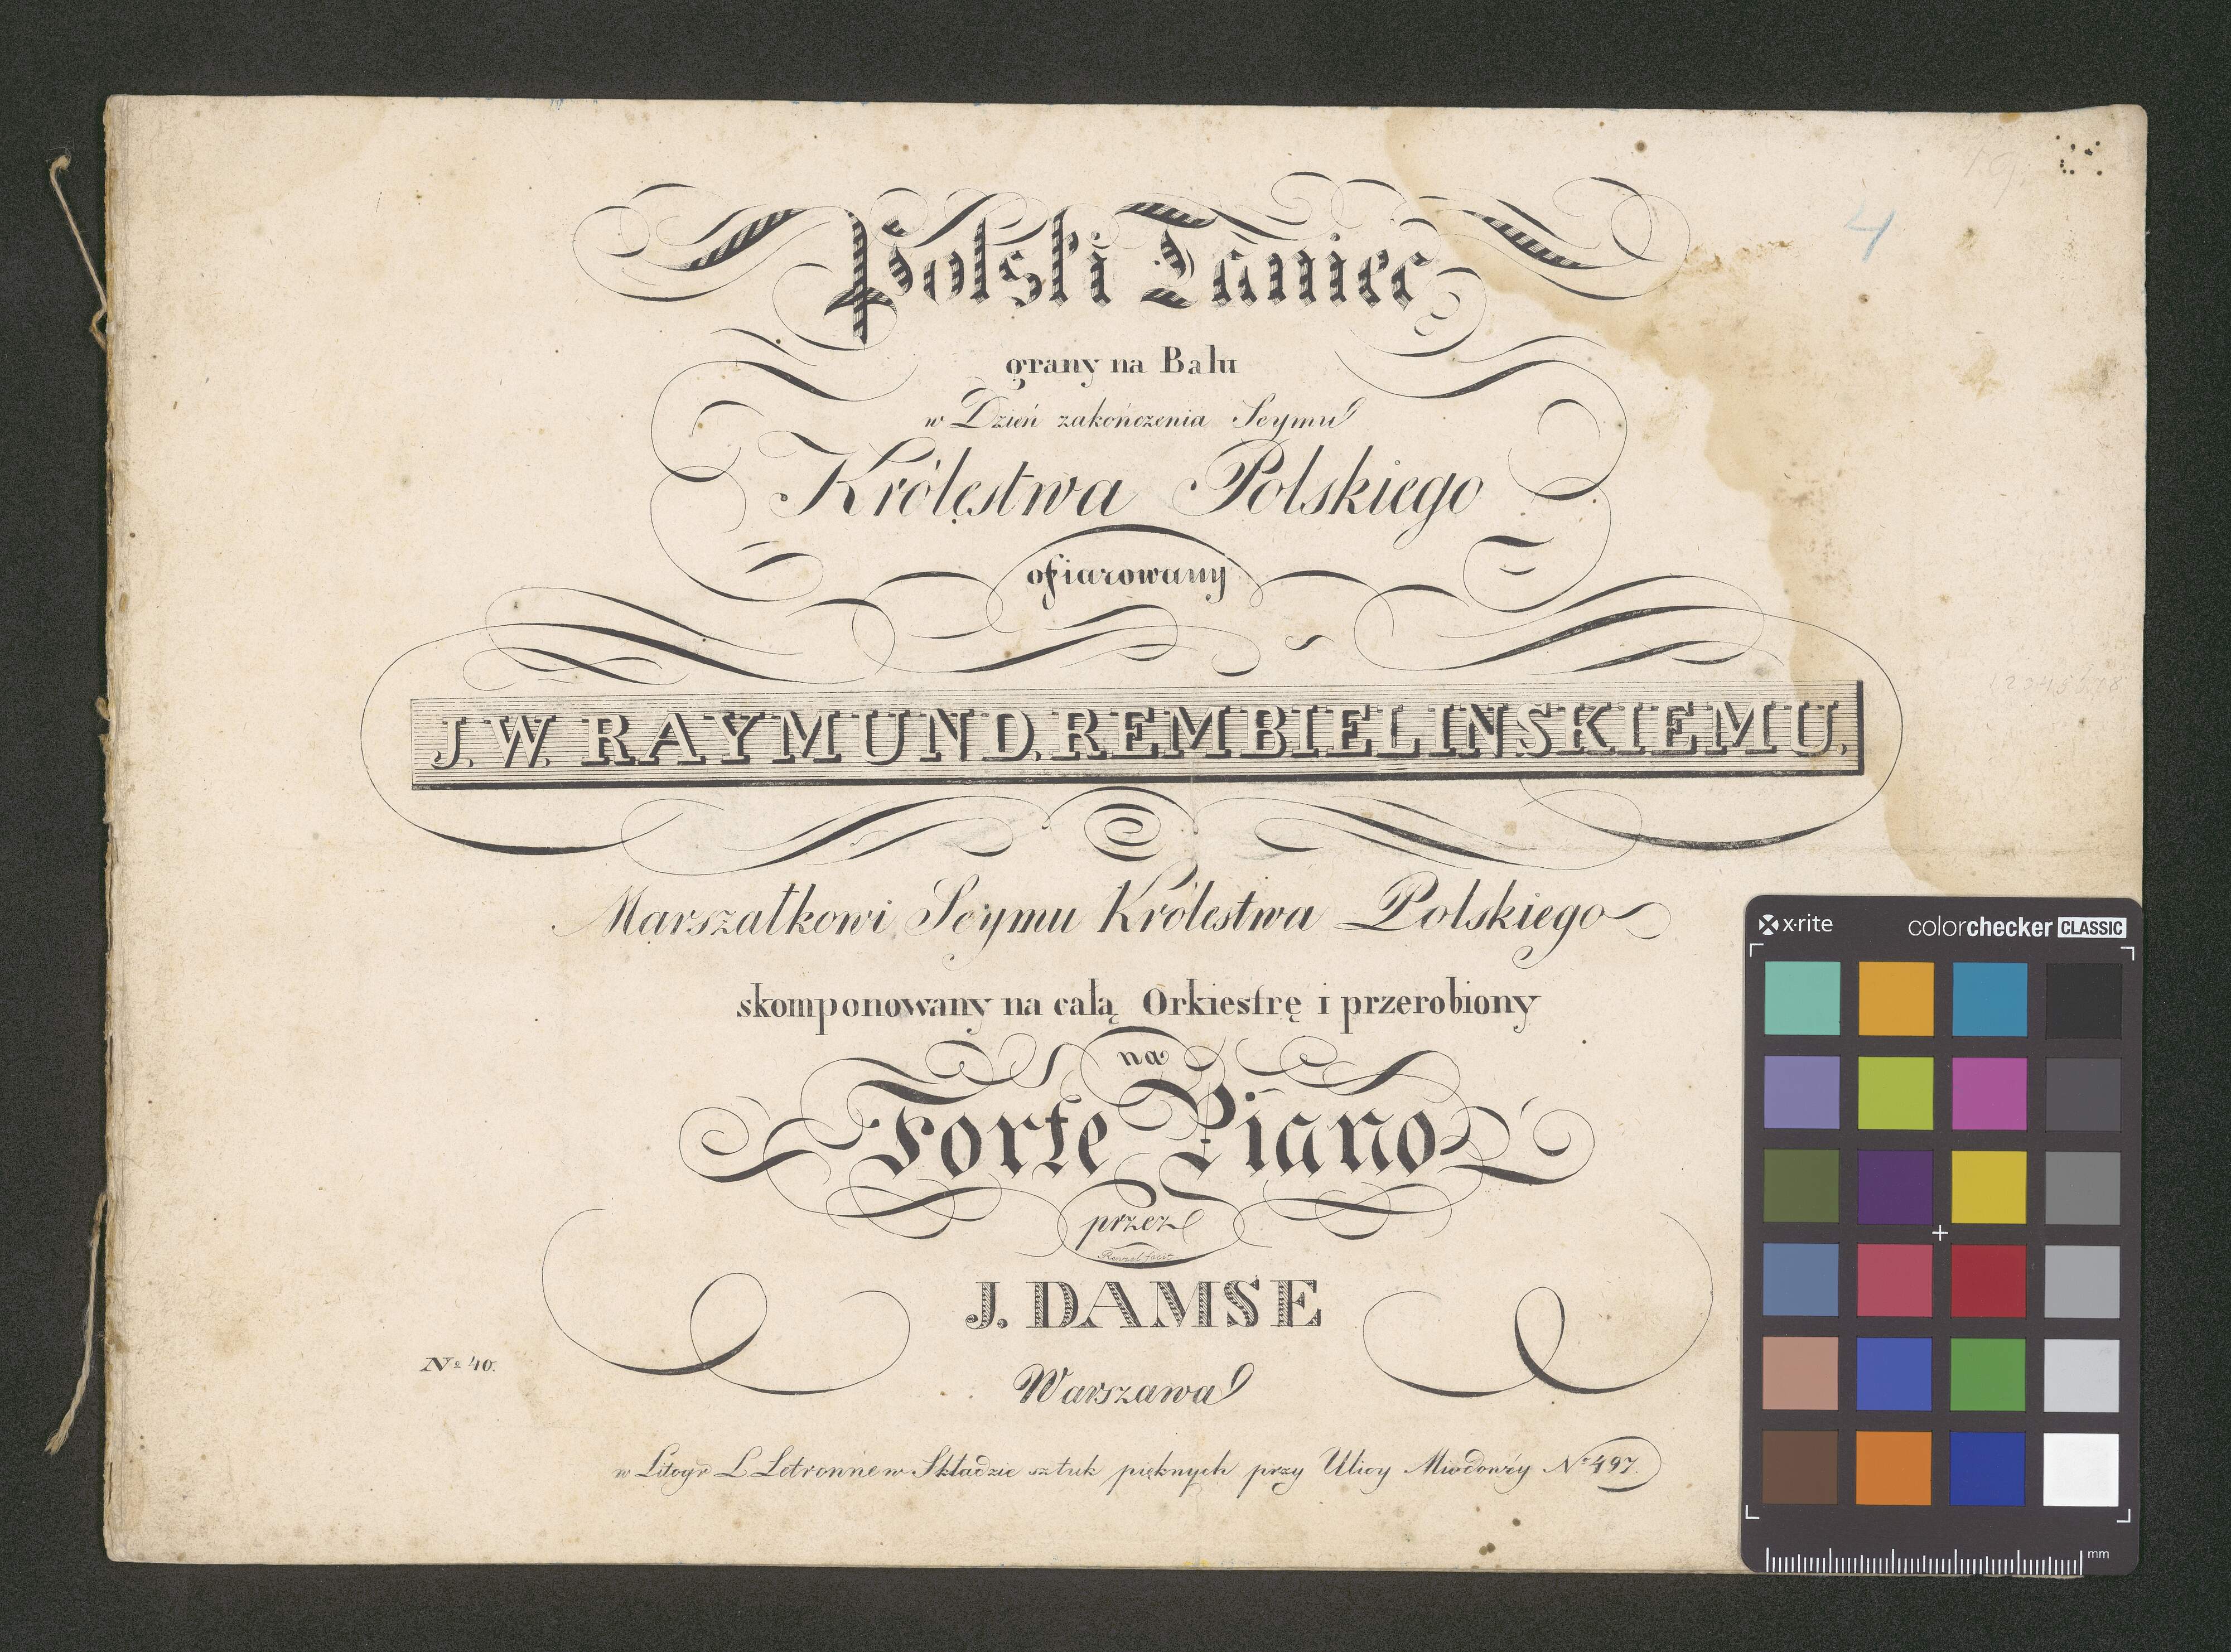 Polski Taniec
grany na Balu
w Dzień zakończenia Seymu
Królestwa Polskiego
ofiarowany
J. W. RAYMUND. REMBIELINSKIEMU.
Marszałkowi Seymu Królestwa Polskiego
skomponowany na całą Orkiestrę i przerobiony
na
Forte Piano
przez
J. DAMSE
No 40.
Warszawa
w Litogr L Letronne w Składzie sztuk pięknych przy Ulicy Miodowéy No 497.
4
x·rite colorchecker CLASSIC
mm